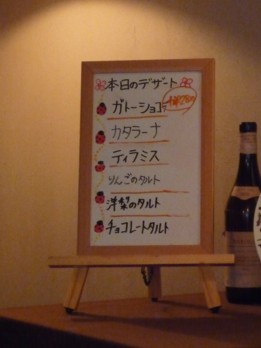 本日のデザート
ガトーショコラ
カタラーナ
ティラミス
りんごのタルト
洋梨のタルト
チョコレートタルト